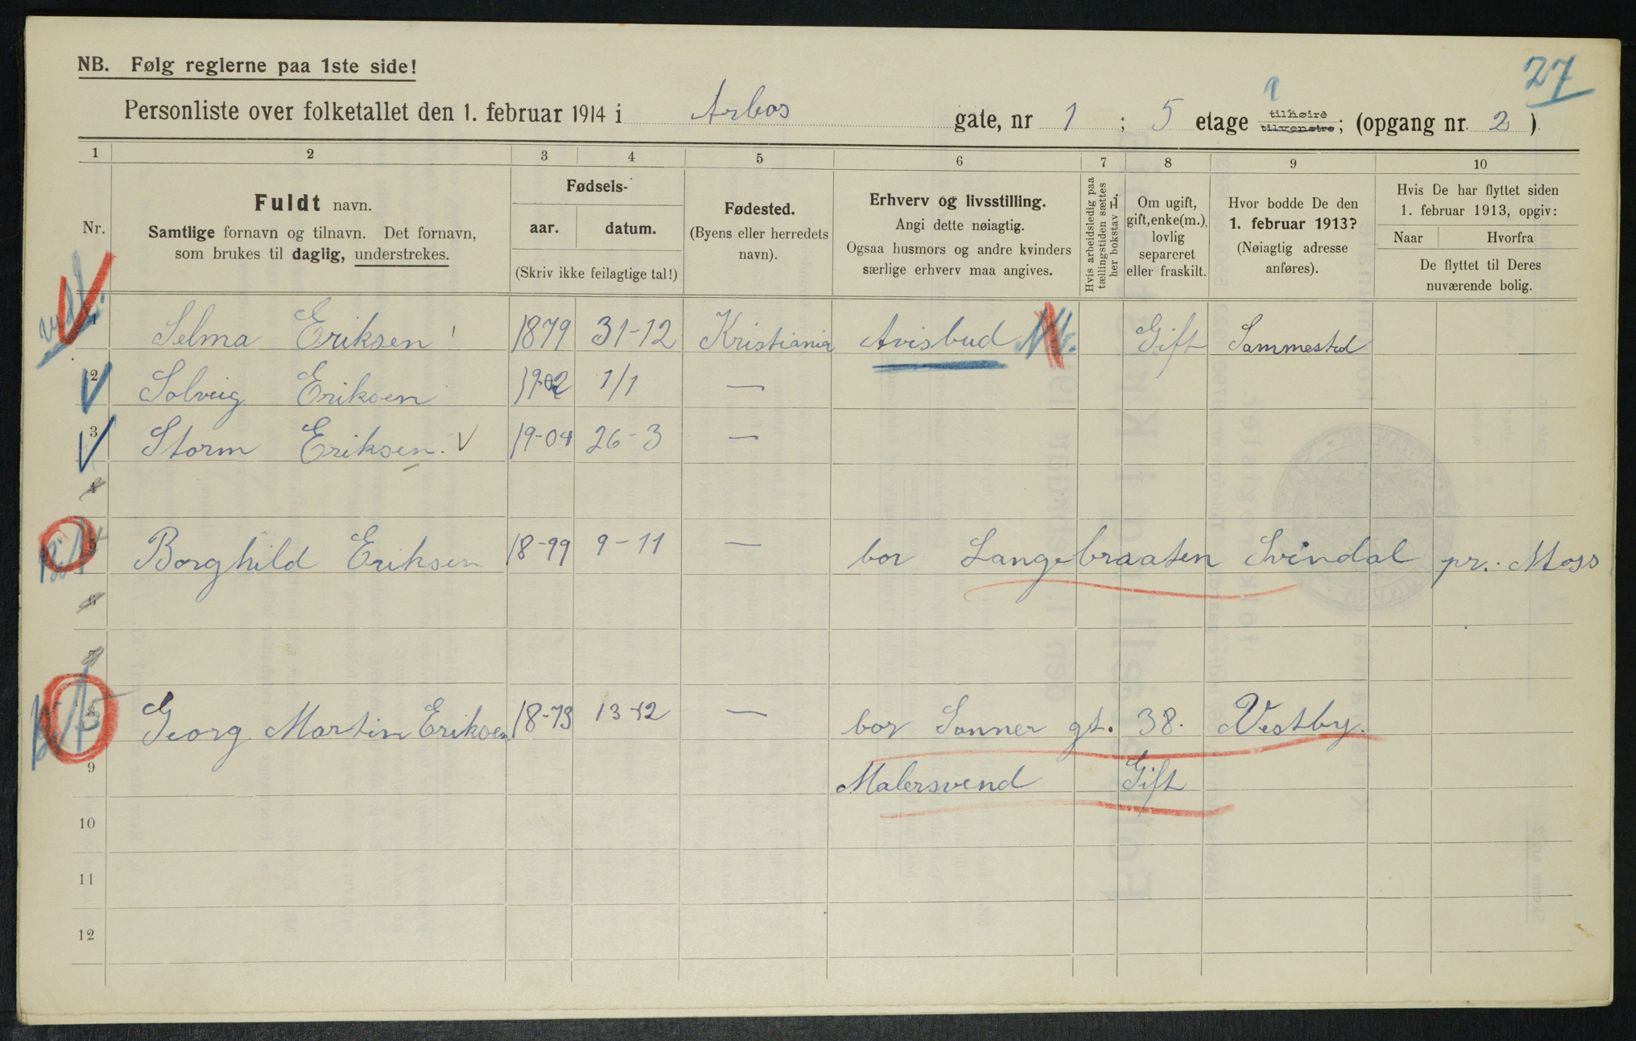 NB. Følg reglerne paa 1ste side!
27
Personliste over folketallet den 1. februar 1914 i Arbos gate, nr 1 ; 5 etage tilhøire tilvenstre; (opgang nr. 2 )
1 2 3 4 5 6 7 8 9 10
Nr.
Fuldt navn.
Samtlige fornavn og tilnavn. Det fornavn,
som brukes til daglig, understrekes.
Fødsels-
aar. datum.
(Skriv ikke feilagtige tal!)
Fødested.
(Byens eller herredets
navn).
Erhverv og livsstilling.
Angi dette nøiagtig.
Ogsaa husmors og andre kvinders
særlige erhverv maa angives.
Hvis arbeidsledig paa
tællingstiden sættes
her bokstav L.
Om ugift,
gift, enke(m.),
lovlig
separeret
eller fraskilt.
Hvor bodde De den
1. februar 1913?
(Nøiagtig adresse
anføres).
Hvis De har flyttet siden
1. februar 1913, opgiv:
Naar Hvorfra
De flyttet til Deres
nuværende bolig.
1 Selma Eriksen 1879 31-12 Kristiania Avisbud Gift Sammested
2 Solveig Eriksen 19-02 1/1 —
3 Storm Eriksen. 19-04 26-3 —
4
5 Borghild Eriksen 18-99 9-11 — bor Langebraaten Svindal pr. Moss
6
7
Georg Martin Eriksen 18-79 13-12 — bor Sanner gt. 38. Vestby.
9 Malersvend Gift
10
11
12